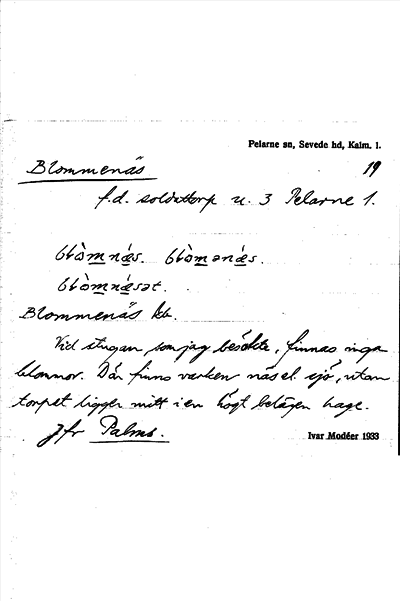 Pelarne sn, Sevede hd, Kalm. l.
Blommenäs 19
f.d. soldattorp u. 3 Pelarne 1.
blòmnæ̀s. blòmənæ̀s.
blòmnæ̀sət.
Blommenäs kb.
Vid stugan, som jag besökte, finnas inga
blommor. Där finns varken näs el. sjö, utan
torpet ligger mitt i en högt belägen hage.
Jfr Palms.
Ivar Modéer 1933